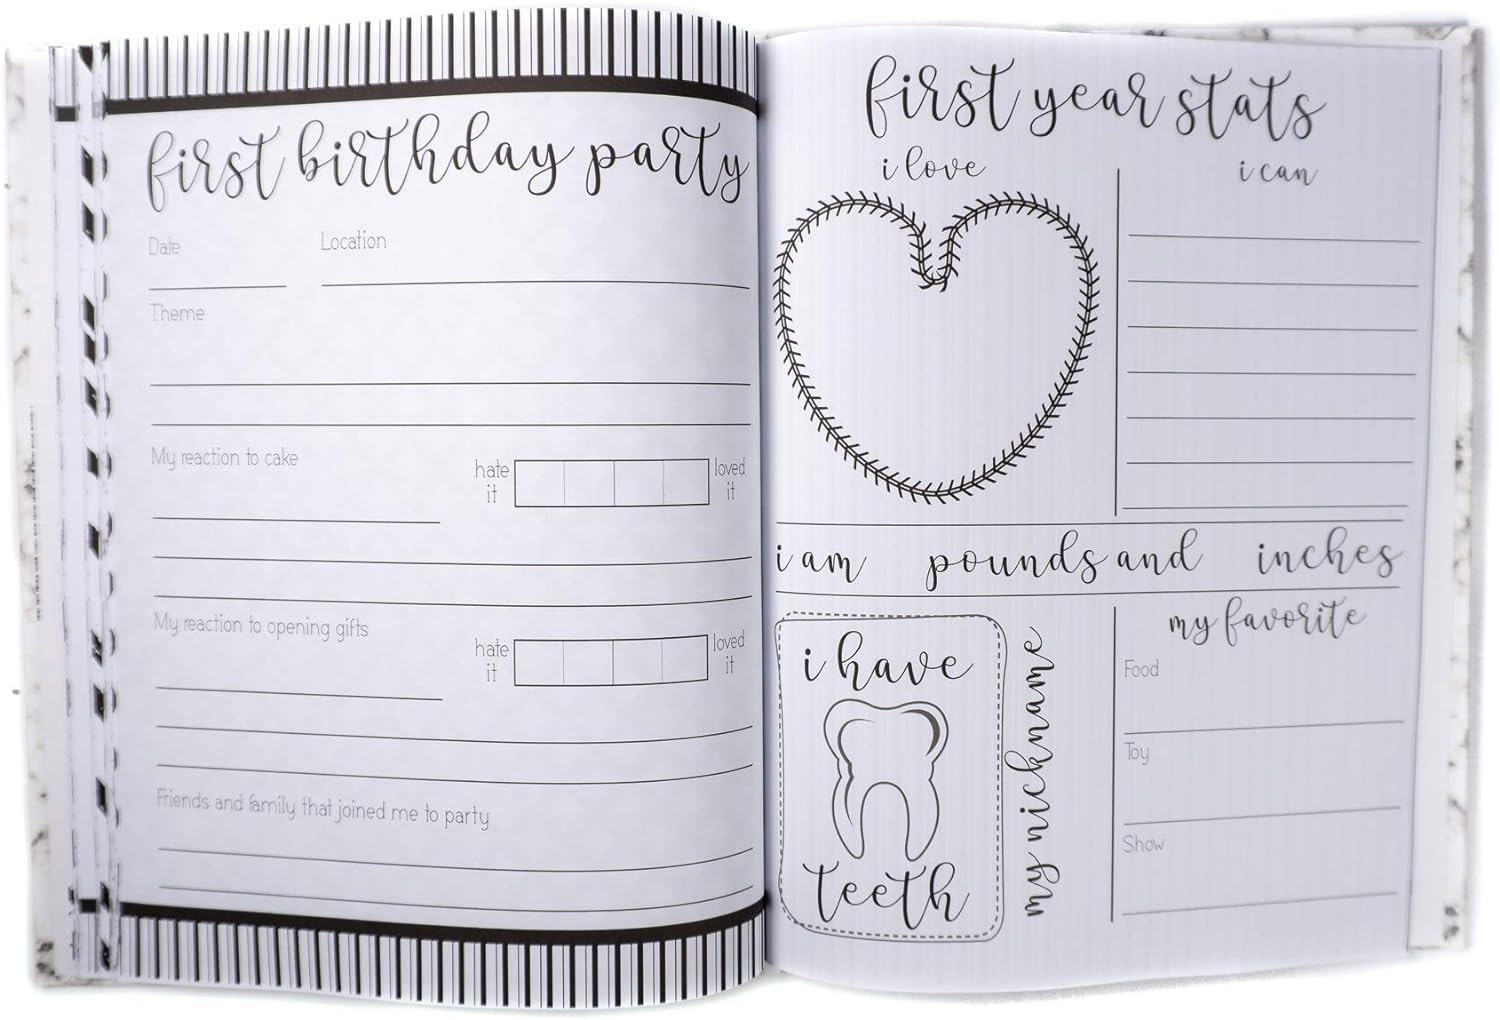 first birthday party
Date Location
Theme
My reaction to cake
hate it loved it
My reaction to opening gifts
hate it loved it
Friends and family that joined me to party
first year stats
i love
i can
i am pounds and inches
i have
teeth
my nickname
my favorite
Food
Toy
Show